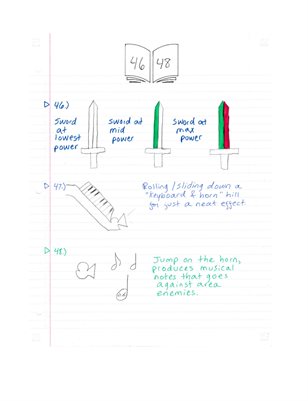 46 48
46.)
Sword at lowest power
Sword at mid power
Sword at max power
47.)
Rolling/sliding down a
"keyboard & horn" hill
for just a neat effect
48.)
Jump on the horn,
produces musical
notes that goes
against area
enemies.